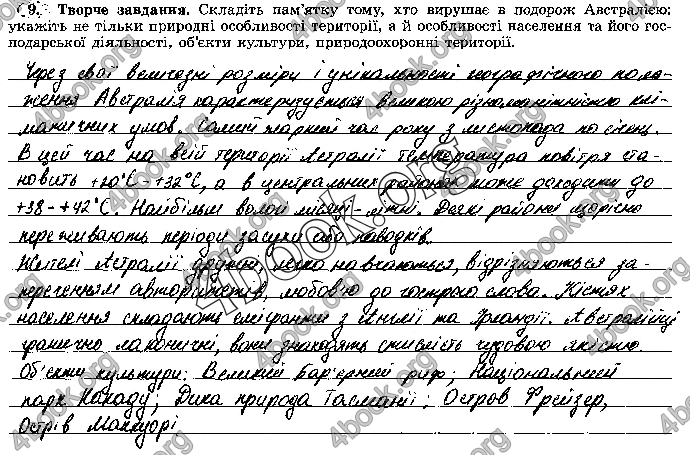 9. Творче завдання. Складіть пам'ятку тому, хто вирушає в подорож Австралією;
укажіть не тільки природні особливості території, а й особливості населення та його гос-
подарської діяльності, об'єкти культури, природоохоронні території.
Через свої величезні розміри і унікальності географічного поло-
ження Австралія характеризується великою різноманітністю клі-
матичних умов. Самий жаркий час року з листопада по січень.
В цей час на всій території Астралії температура повітря ста-
новить +20°С - +32°С, а в центральних районах може доходити до
+38 - +42°С. Найбільш вологі літні. Деякі райони щорічно
переживають періоди засухи або паводків.
Жителі Астралії дружні, легко навчаються, відрізняються за-
переченням авторитетів, любов'ю до гострого слова. Кістяк
населення складають емігранти з Англії та Ірландії. Австралійці
гранично лаконічні, вони знаходять стислість чудовою якістю.
Об'єкти культури: Великий Бар'єрний риф; Національний
парк Какаду; Дика природа Тасманії; Острів Фрейзер,
Острів Маккуорі
4book.org